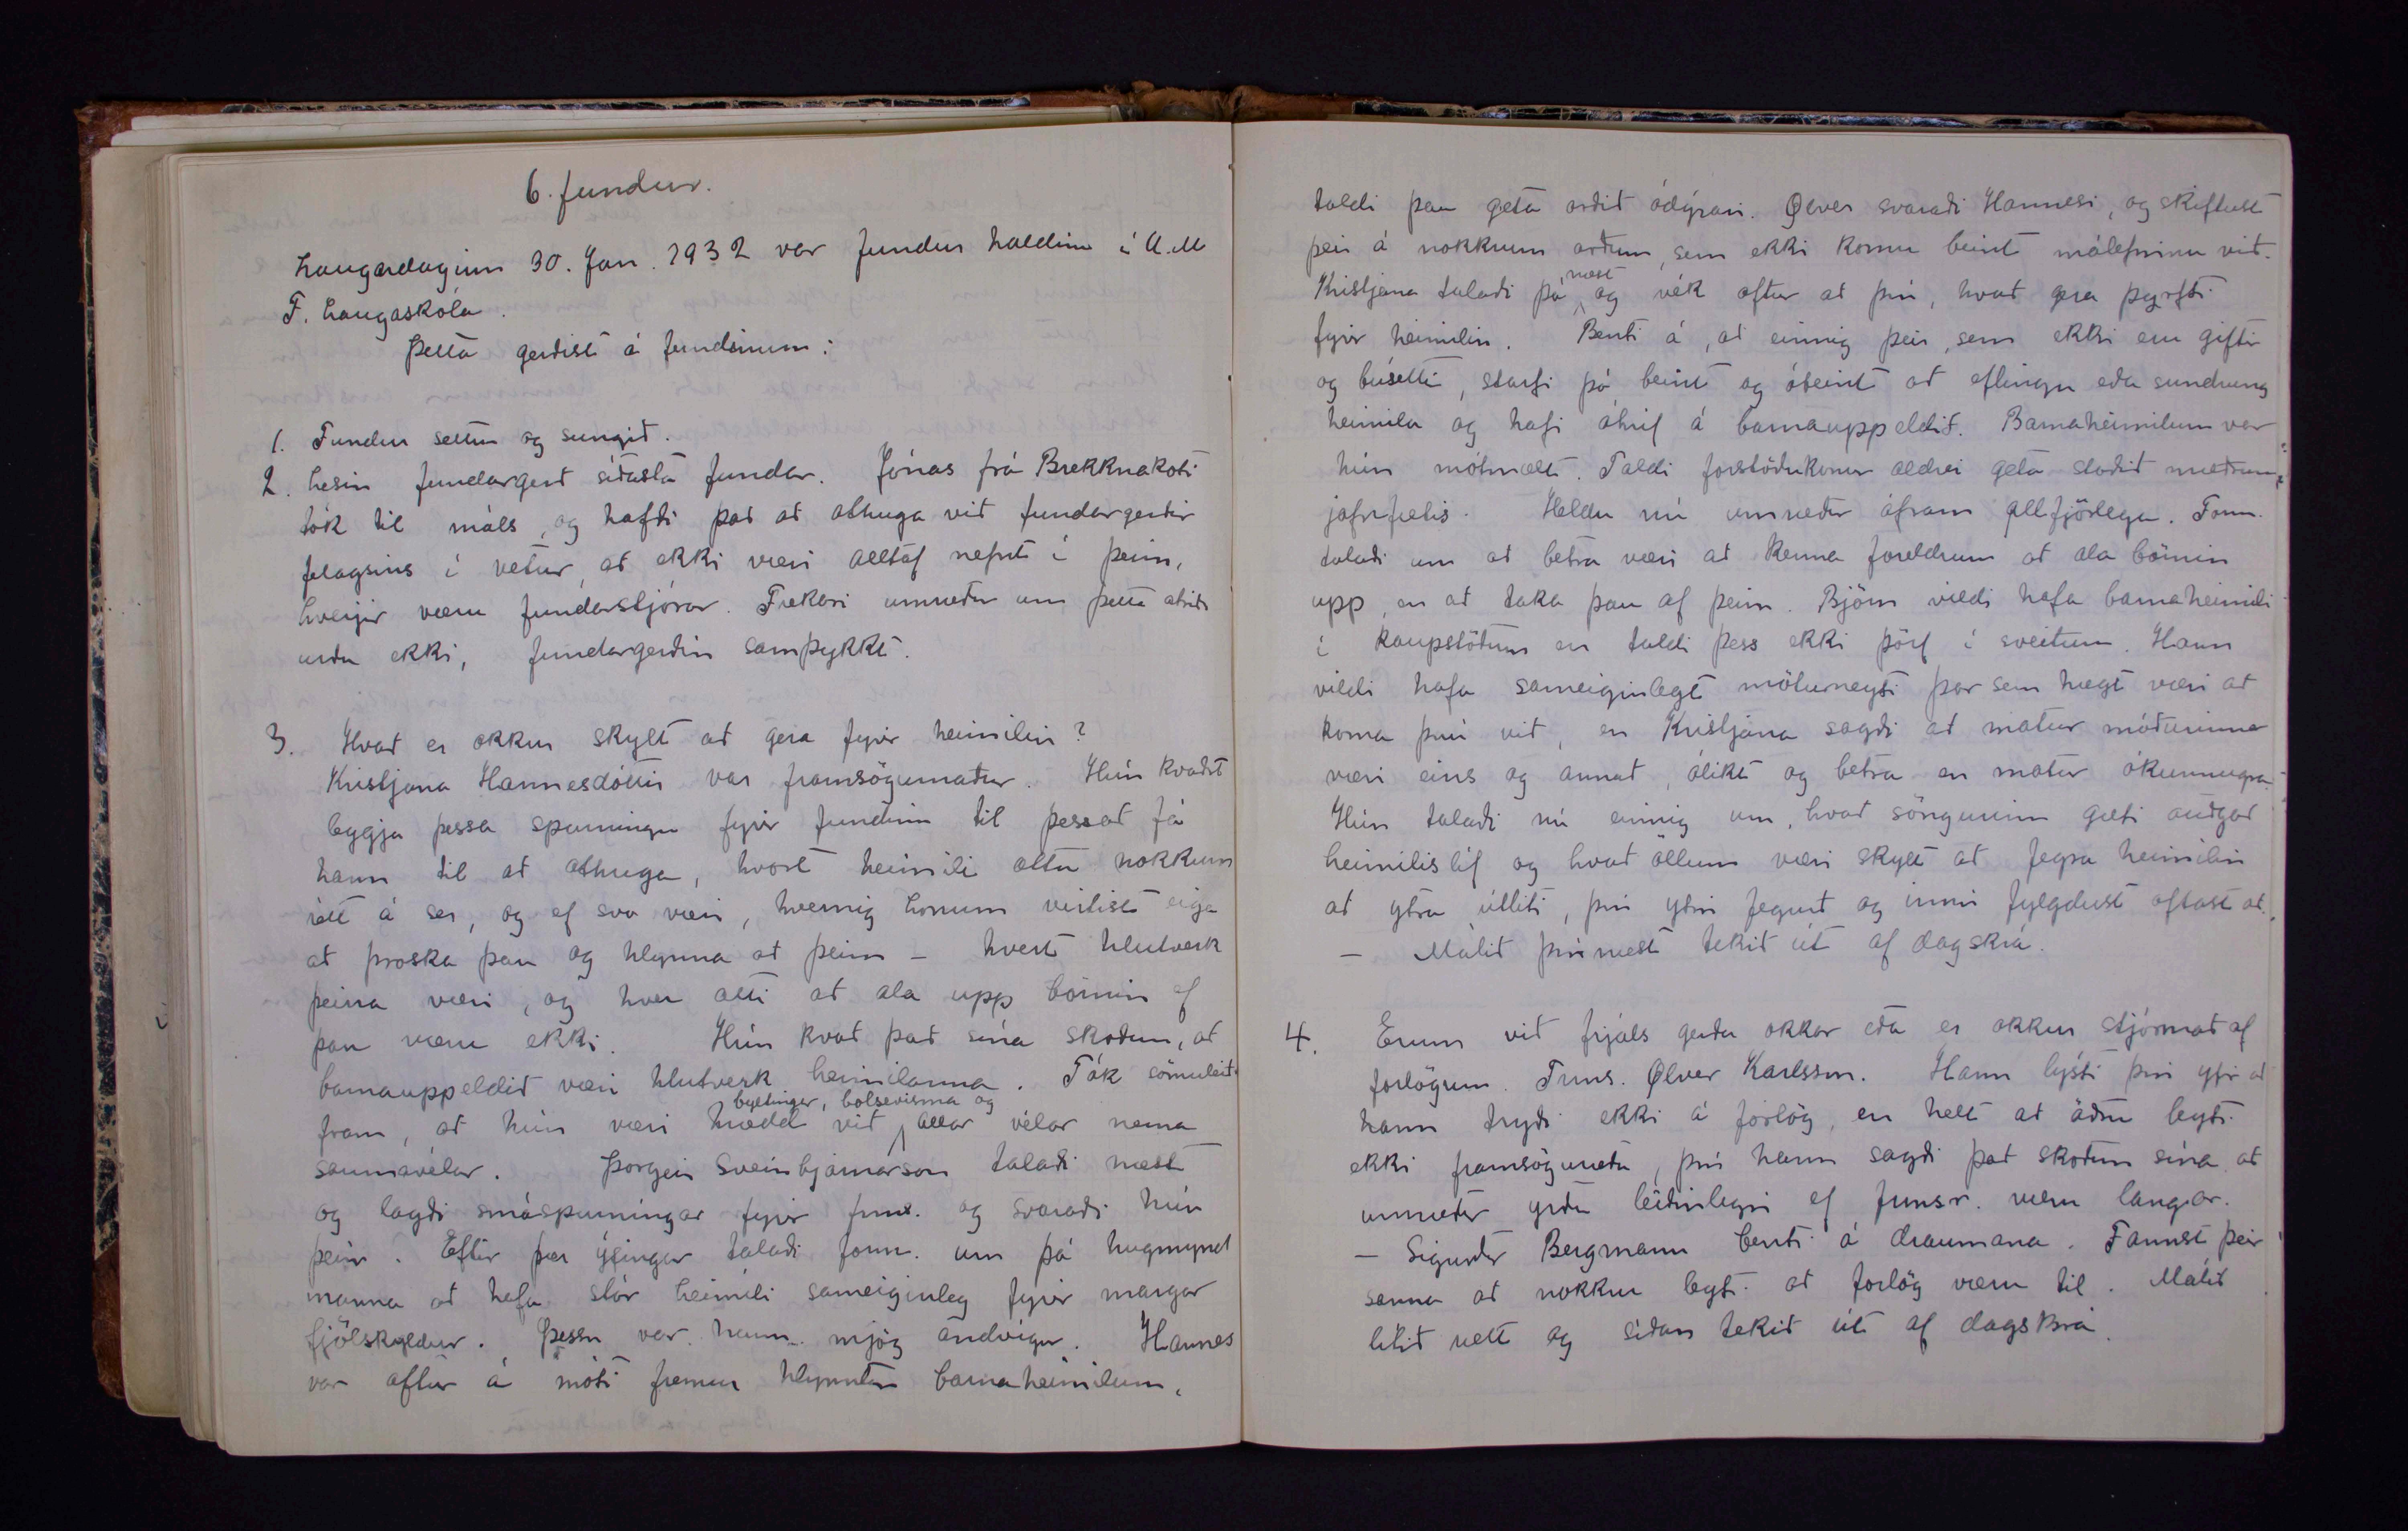 6. fundur.
Laugardaginn 30. Jan. 1932 var fundur haldinn í U.M
F. Laugaskóla.
Þetta gerðist á fundinum:
1. Fundur settur og sungið.
2. Lesin fundargerð síðasta fundar. Jónas frá Brekknakoti
tók til máls, og hafði það að athuga við fundargerðir
félagsins í vetur, að ekki væri alltaf nefnt í þeim,
hverjir væru fundarstjórar. Frekari umræður um þetta atriði
urðu ekki, fundargerðin samþykkt.
3. Hvað er okkur skylt að gera fyrir heimilin?
Kristjana Hannesdóttir var framsögumaður. Hún kvaðst
leggja þessa spurningu fyrir fundinn til þess að fá
hann til að athuga, hvort heimili ættu nokkurn
rétt á sér, og ef svo væri, hvernig honum virtist eiga
að þroska þau og hlynna að þeim – hvert hlutverk
þeirra væri, og hver ætti að ala upp börnin ef
þau væru ekki. Hún kvað það sína skoðun, að
barnauppeldið væri hlutverk heimilanna. Tók sömuleiðis
byltingar, bolsevisma og
fram, að hún væri hrædd við allar vélar nema
saumavélar. Þorgeir Sveinbjarnarson talaði næst
og lagði smáspurningar fyrir frms. og svaraði hún
þeim. Eftir þær ýfingar talaði form. um þá hugmynd
manna að hafa stór heimili sameiginleg fyrir margar
fjölskyldur. Þessu var hann mjög andvígur. Hannes
var aftur á móti fremur hlynntur barnaheimilum,
taldi þau geta orðið ódýrari. Ølver svaraði Hannesi, og skiftust
þeir á nokkrum orðum, sem ekki komu beint málefninu við.
næst
Kristjana talaði þá og vék aftur að því, hvað gera þyrfti
fyrir heimilin. Benti á, að einnig þeir, sem ekki eru giftir
og búsettir, starfi þó beint og óbeint að eflingu eða sundrung
heimila og hafi áhrif á barnauppeldið. Barnaheimilum var
hún mótmælt. Taldi forstöðukonur aldrei geta staðið mæðrum
jafnfætis. Héldu nú umræður áfram allfjörlega. Form.
talaði um að betra væri að kenna foreldrum að ala börnin
upp, en að taka þau af þeim. Björn vildi hafa barnaheimili
í kaupstöðum en taldi þess ekki þörf í sveitum. Hann
vildi hafa sameiginlegt mötuneyti þar sem hægt væri að
koma því við, en Kristjana sagði að matur móðurinnar
væri eins og annað, ólíkt og betra en matur ókunnugra.
Hún talaði nú einnig um, hvað söngurinn gæti auðgað
heimilislíf og hvað öllum væri skylt að fegra heimilin
að ytra útliti, því ytri fegurð og innri fylgdust oftast að.
– Málið þvínæst tekið út af dagskrá.
4. Erum við frjáls gerða okkar eða er okkur stjórnað af
forlögum. Frms. Ølver Karlsson. Hann lýsti því yfir að
hann tryði ekki á forlög, en hélt að öðru leyti
ekki framsöguræðu, því hann sagði það skoðun sína að
umræður yrðu leiðinlegri ef frmsr. væru langar.
– Sigurður Bergmann benti á draumana. Fannst þeir
sanna að nokkru leyti að forlög væru til. Málið
lítið rætt og síðan tekið út af dagskrá.